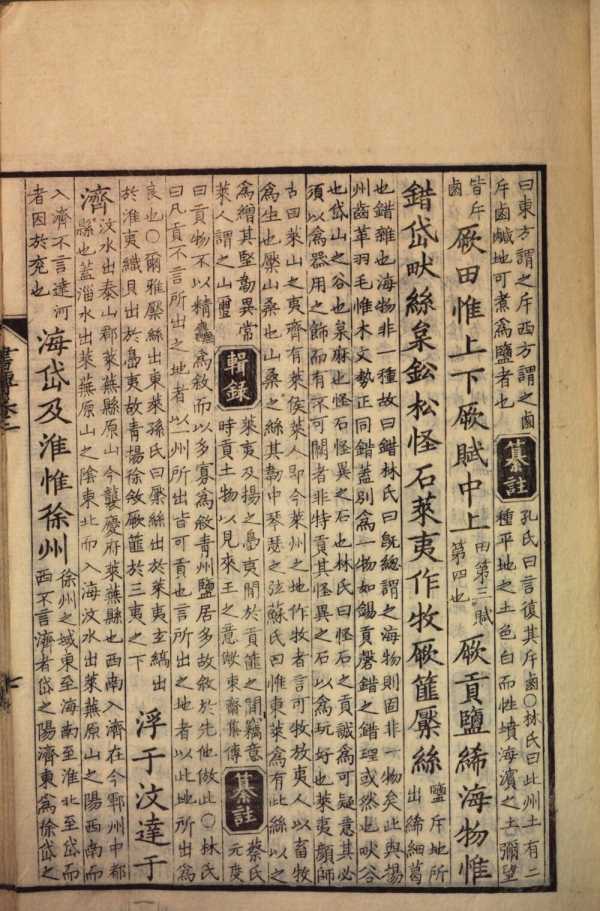 曰東方謂之斥西方謂之鹵
斥鹵鹹地可煮為鹽者也
纂註
孔氏曰言復其斥鹵○林氏曰此州土有二
種平地之土色白而性墳海濵之土彌望
皆斥
鹵
厥田惟上下厥賦中上
田第三賦
第四也
厥貢鹽絺海物惟
錯岱畎絲枲鈆松怪石萊夷作牧厥篚檿絲
鹽斥地所
出絺細葛
也錯雜也海物非一種故曰錯林氏曰既總謂之海物則固非一物矣此與揚
州齒革羽毛惟木文勢正同錯蓋别為一物如錫貢磬錯之錯理或然也畎谷
也岱山之谷也枲麻也怪石怪異之石也林氏曰怪石之貢誠為可疑意其必
須以為器用之飾而有不可闕者非特貢其怪異之石以為玩好也萊夷顔師
古曰萊山之夷齊有萊侯萊人即今萊州之地作牧者言可牧放夷人以畜牧
為生也檿山桑也山桑之絲其韌中琴瑟之弦蘇氏曰惟東萊為有此絲以之
為繒其堅韌異常
萊人謂之山璽
輯錄
萊夷及揚之島夷間於貢篚之間竊意
時貢土物以見來王之意歟東齋集傳
纂註
蔡氏
元度
曰貢物不以精麄為敘而以多寡為敘青州鹽居多故敘於先他倣此○林氏
曰凡貢不言所出之地者以州所出皆可貢也言所出之地者以此地所出為
良也○爾雅檿絲出東萊孫氏曰檿絲出於萊夷玄縞出
於淮夷織貝出於島夷故青揚徐敘厥篚於三夷之下
浮于汶達于
濟
汶水出泰山郡萊蕪縣原山今襲慶府萊蕪縣也西南入濟在今鄆州中都
縣也蓋淄水出萊蕪原山之陰東北而入海汶水出萊蕪原山之陽西南而
入濟不言達河
者因於兖也
海岱及淮惟徐州
徐州之域東至海南至淮北至岱而
西不言濟者岱之陽濟東為徐岱之